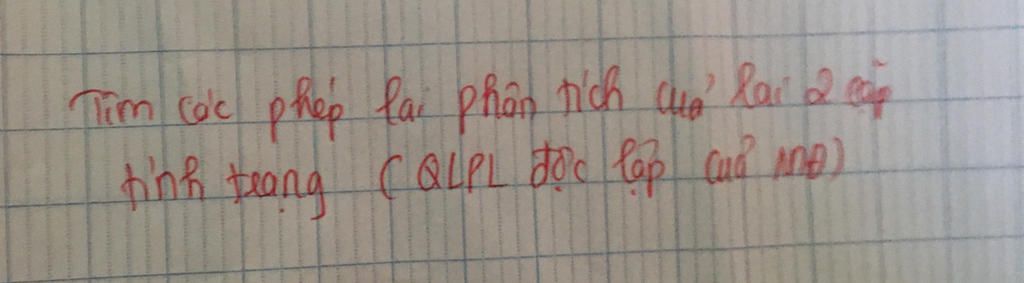 Tìm các phép lai phân tích của lai 2 cặp
tính trạng (QLPL độc lập của MĐ)